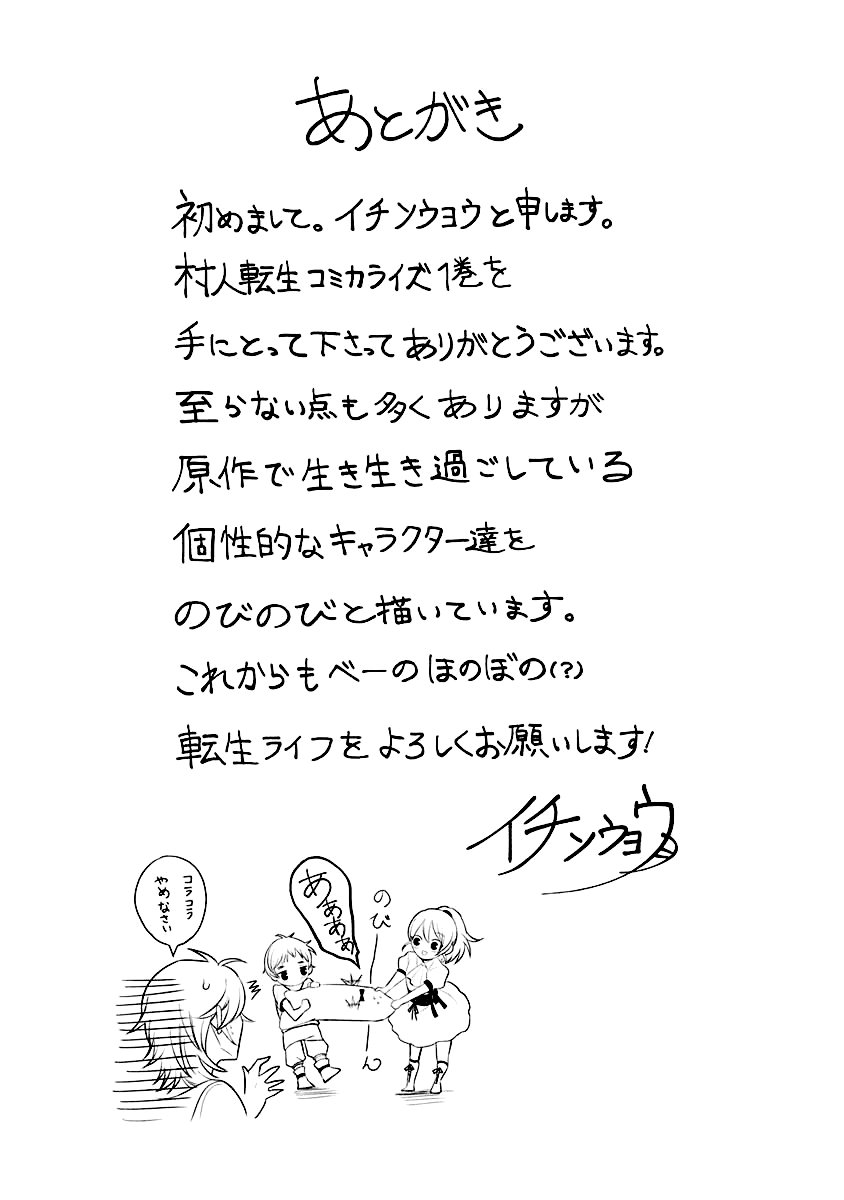 あとがき
初めまして。イチンウョウと申します。
村人転生コミカライズ1巻を
手にとって下さってありがとうございます。
至らない点も多くありますが
原作で生き生き過ごしている
個性的なキャラクター達を
のびのびと描いています。
これからもべーのほのぼの(?)
転生ライフをよろしくお願いします!
イチンウョウ
のび
ああぁぁ
コラコラ
やめなさい
ーん